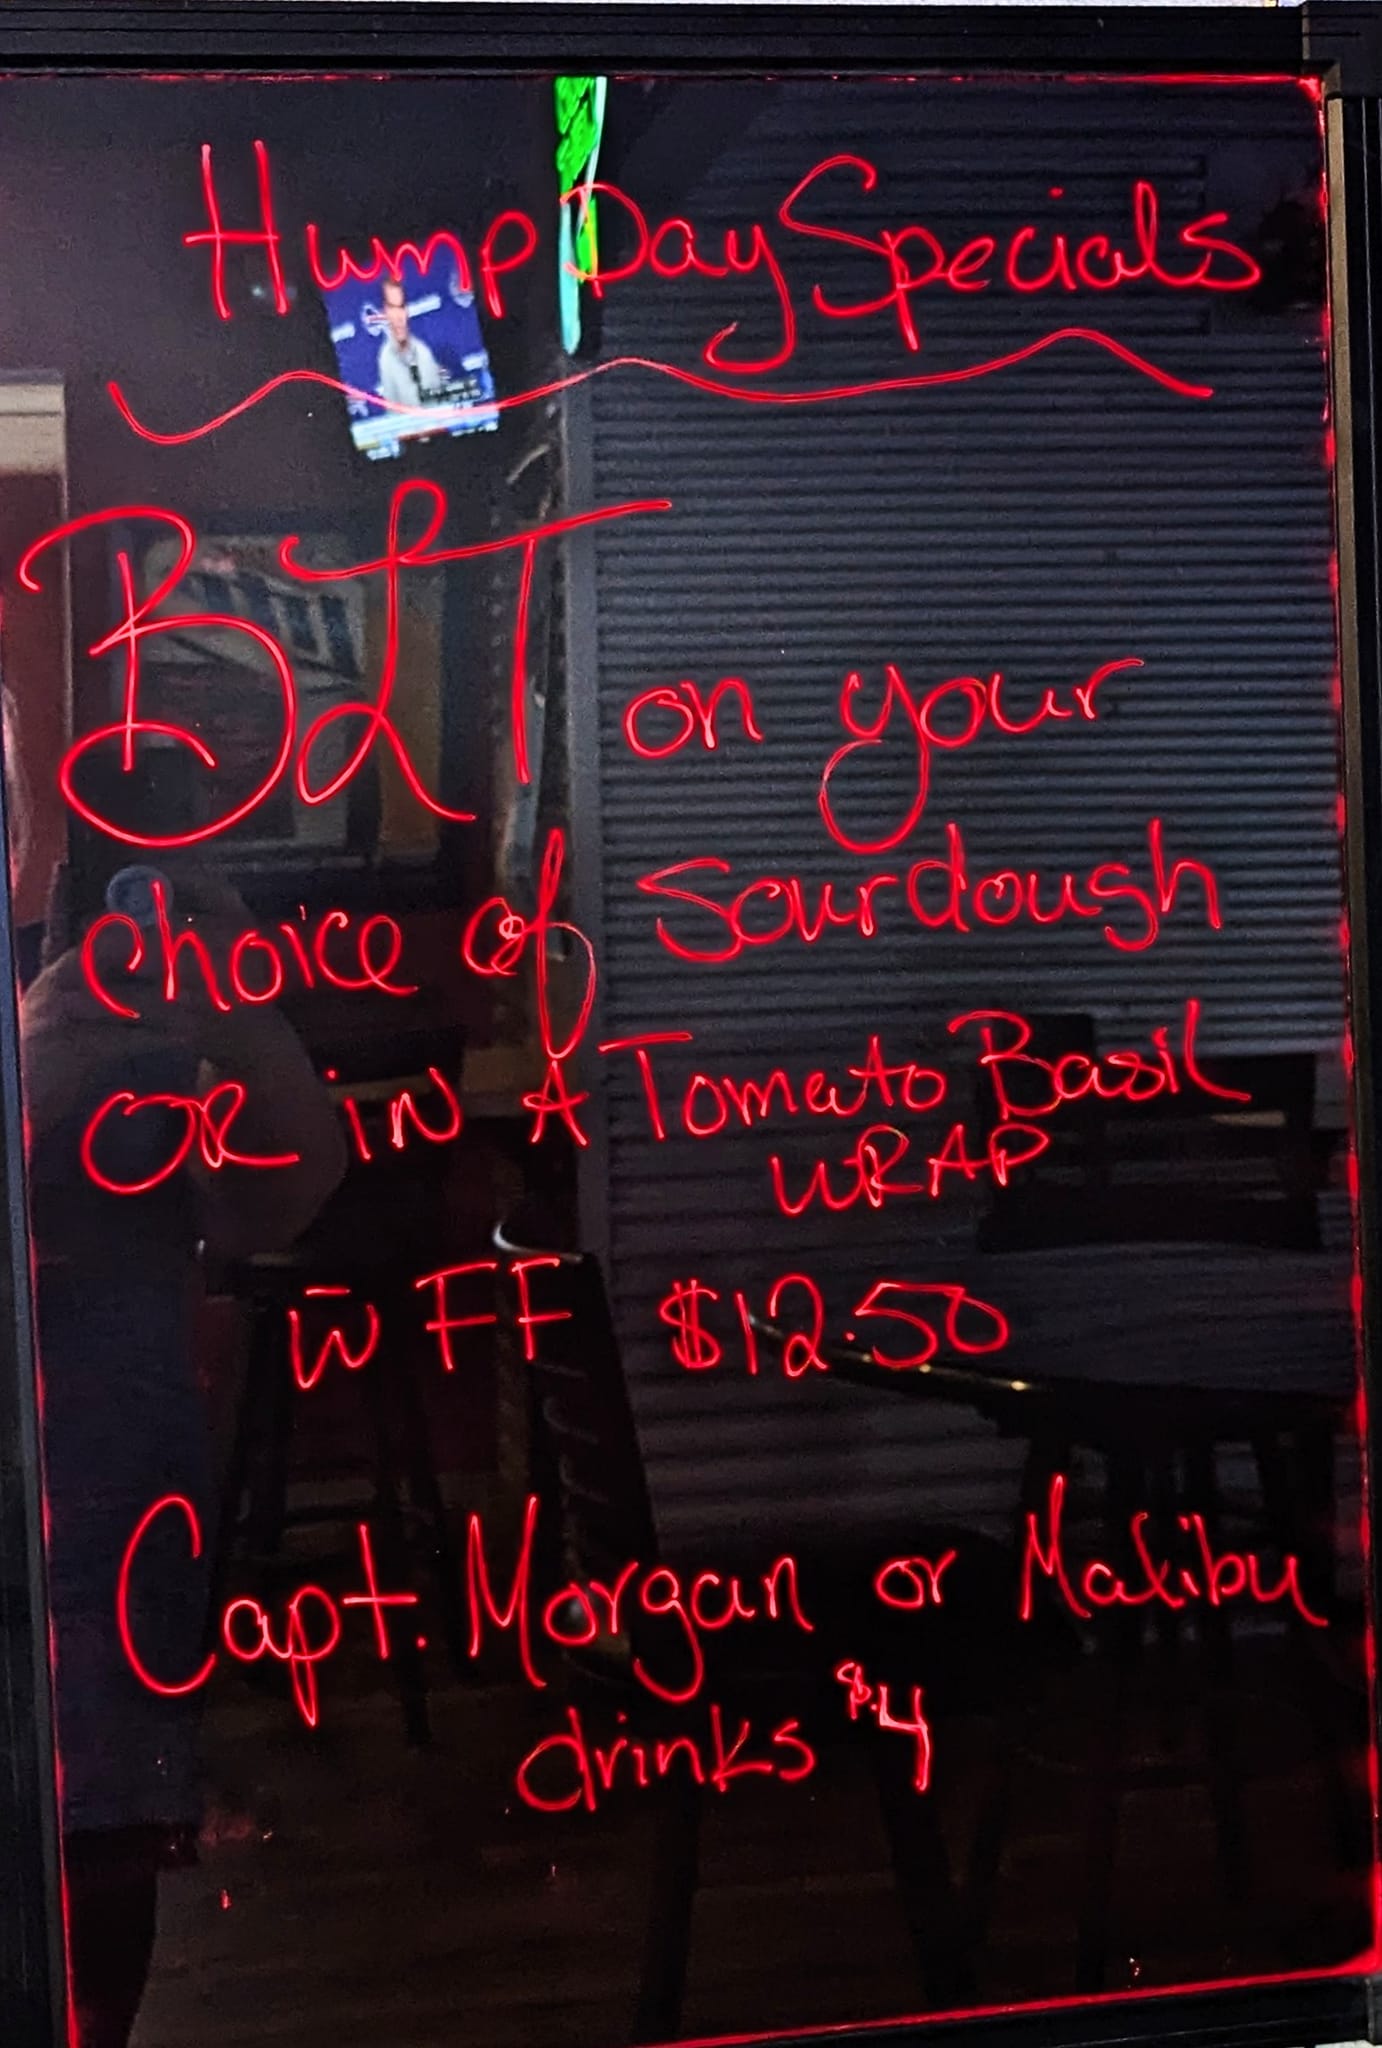 Hump Day Specials
BLT on your
choice of Sourdough
OR iN A Tomato Basil
WRAP
w̄ FF $12.50
Capt. Morgan or Malibu
drinks $4